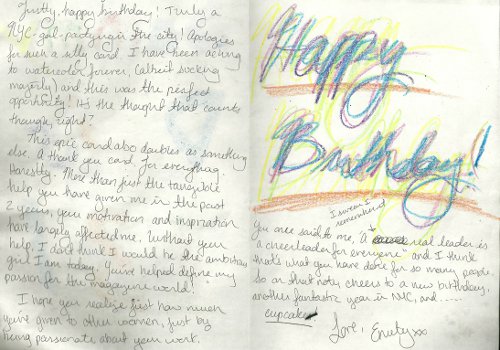 Firstly, happy birthday! Truly a
NYC-gal-partying in the city! Apologies
for such a silly card. I have been aching
to watercolor forever, (albeit sucking
majorly) and this was the perfect
opportunity! It's the thought that counts
though, right?
This epic card also doubles as something
else. A thank you card for everything.
Honestly. More than just the tangible
help you have given me in the past
2 years, your motivation and inspiration
have largely affected me. Without your
help, I don't think I would be the ambitious
girl I am today. You've helped define my
passion for the magazine world!
I hope you realize just how much
you've given to other women, just by
being passionate about your work.
Happy
Birthday!
I swear I
remembered
You once said to me, "a real leader is
a cheerleader for everyone" and I think
that's what you have done for so many people.
So on that note, cheers to a new birthday,
another fantastic year in NYC, and.....
cupcakes
Love, Emily xx